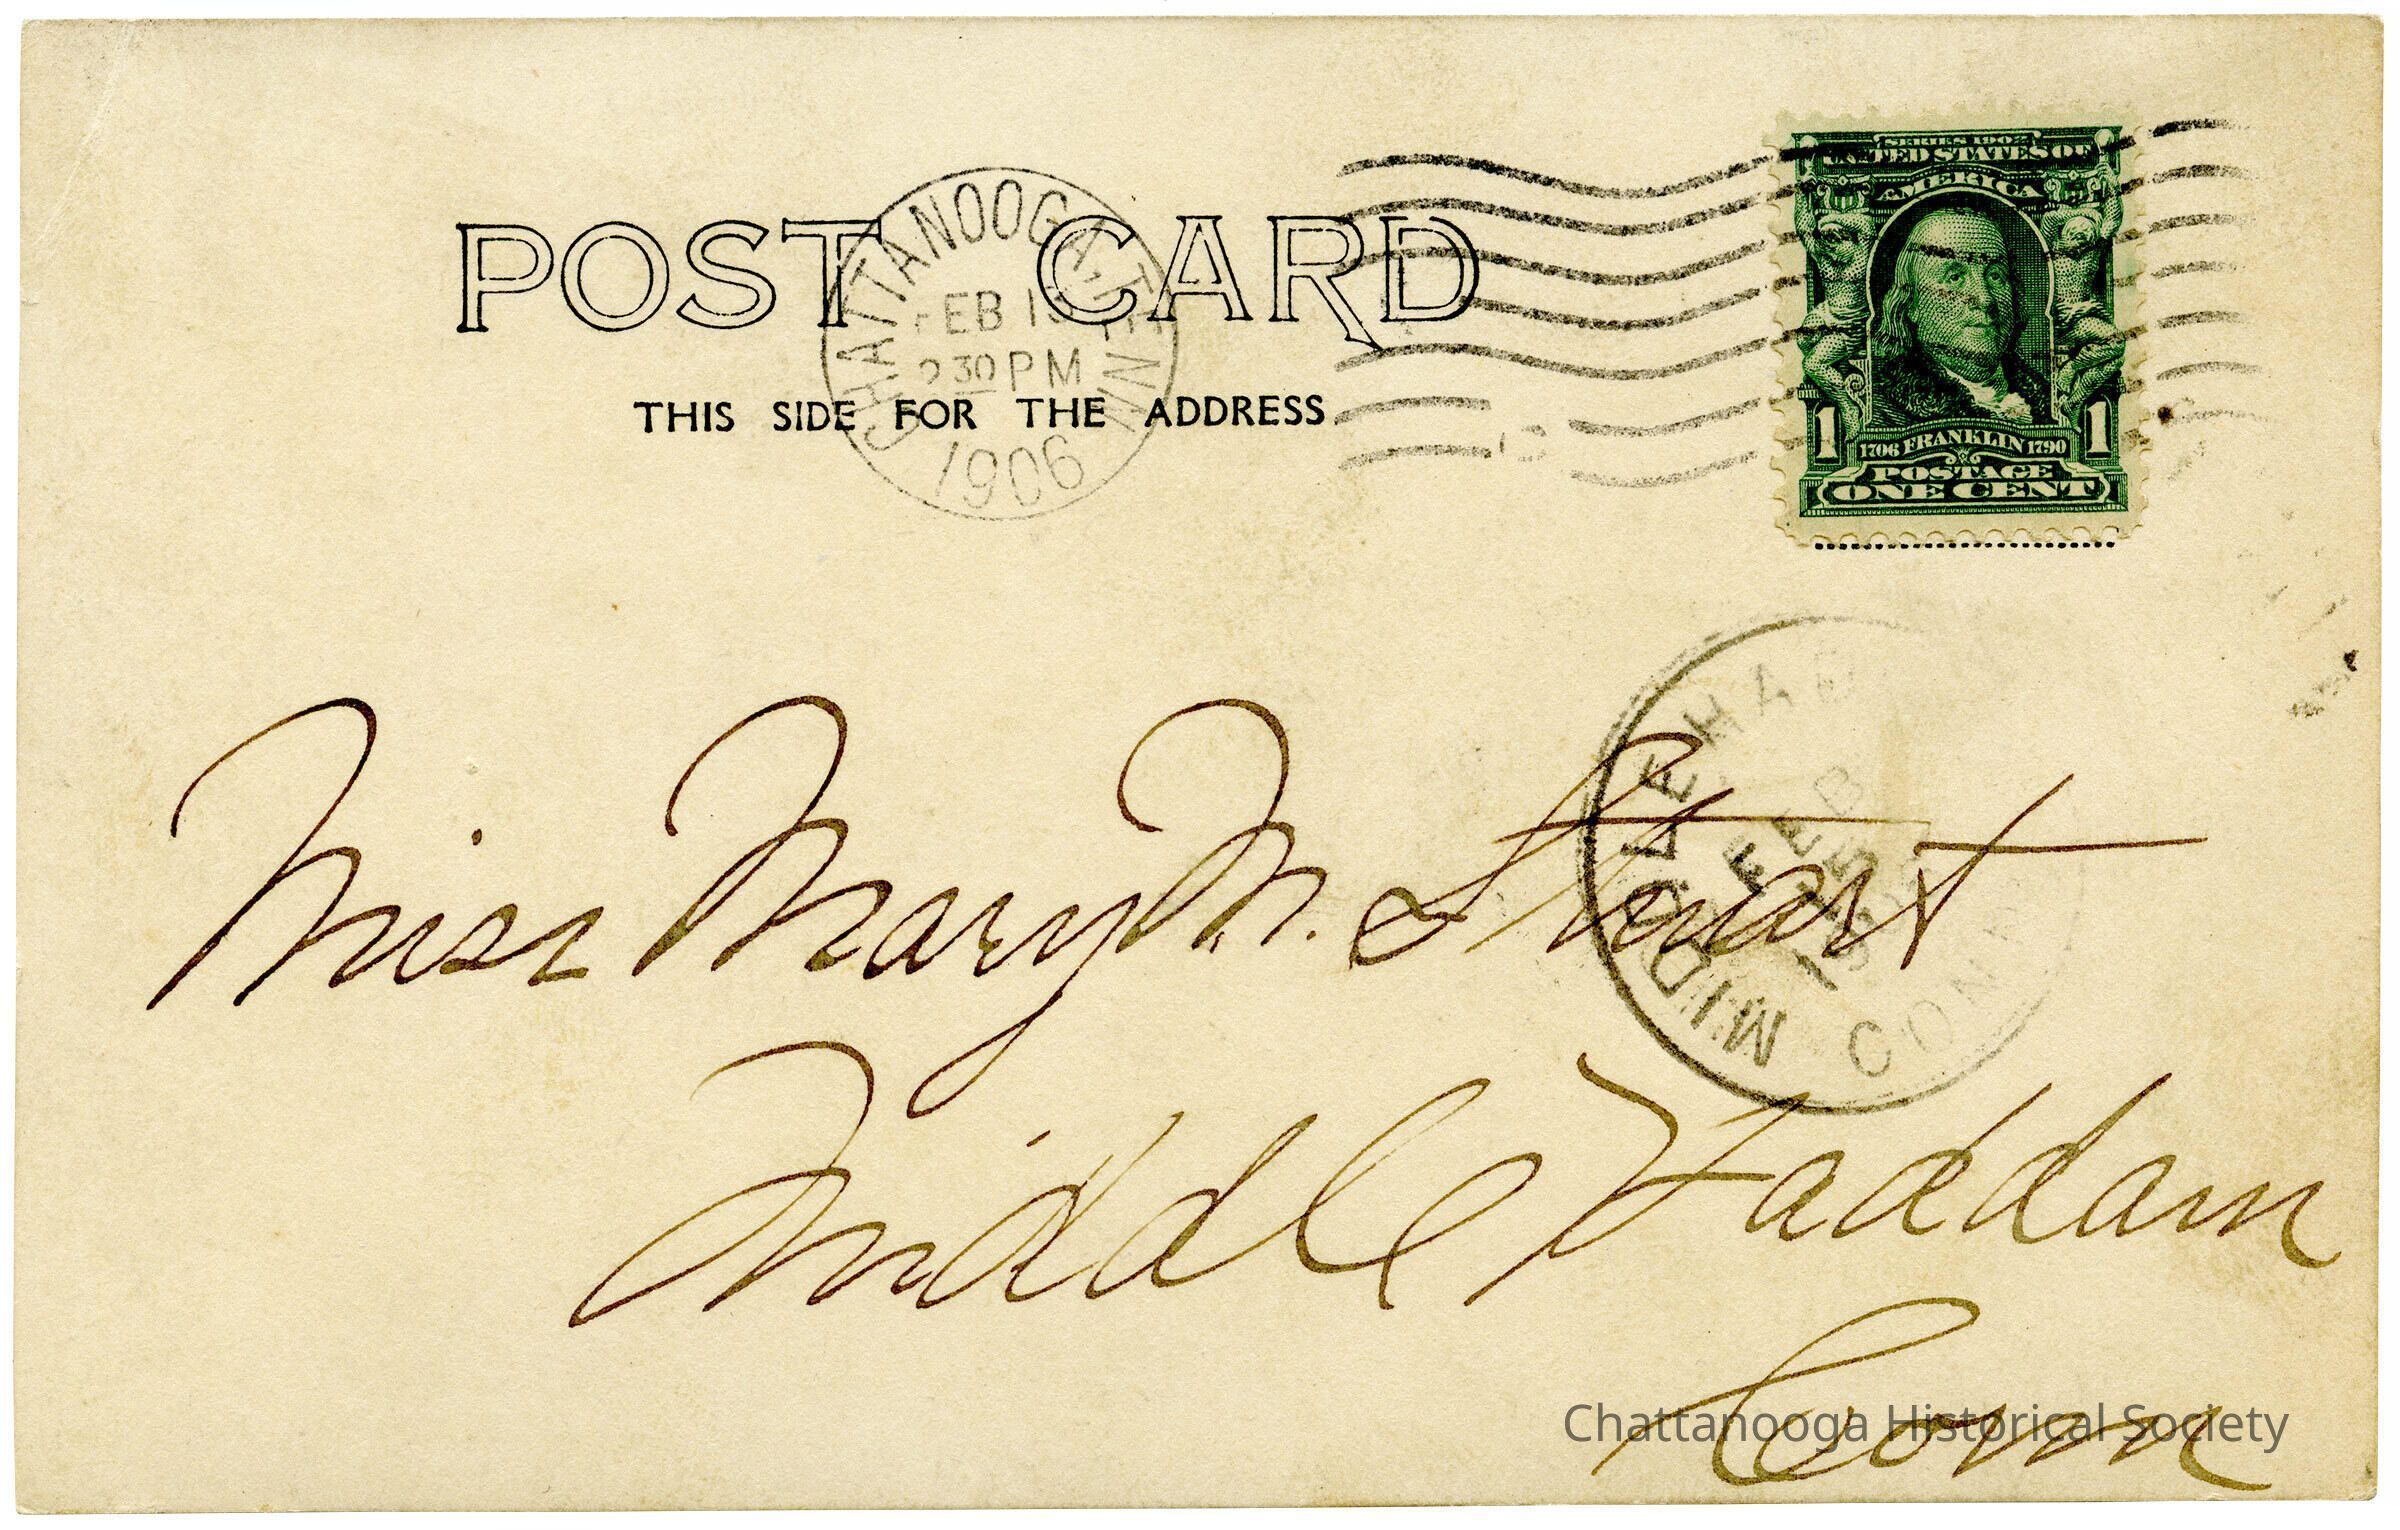 POST CARD
THIS SIDE FOR THE ADDRESS
CHATTANOOGA, TENN
FEB
230 PM
1906
SERIES 1902
UNITED STATES OF
AMERICA
1 1706 FRANKLIN 1790 1
POSTAGE
ONE CENT
MIDDLE HAD
FEB
CONN
Miss Mary M. Stuart
Middle Haddam
Conn
Chattanooga Historical Society